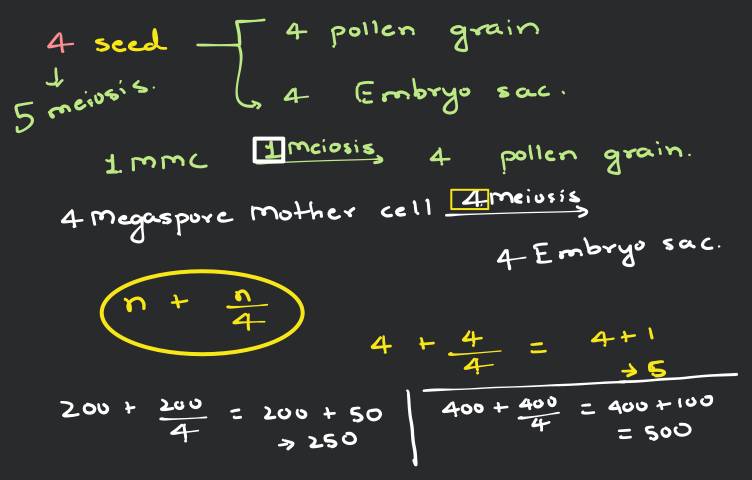 4 seed
4 pollen grain
4 Embryo sac.
↓
5 meiosis.
1 mmc 1 meiosis → 4 pollen grain.
4 Megaspore mother cell 4 meiosis →
4 Embryo sac.
n + n/4
4 + 4/4 = 4+1
→ 5
200 + 200/4 = 200 + 50
→ 250
400 + 400/4 = 400 + 100
= 500